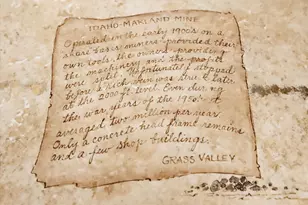 IDAHO-MARYLAND MINE
Operated in the early 1900's on a
share basis, miners provided their
own tools, the owners provided
the machinery and the profits
were split. Unfortunately stopped
before a rich vein was struck later
at the 2000 ft level. Even during
the war years of the 1950's it
averaged two million per year.
Only a concrete head frame remains
and a few shop buildings.
GRASS VALLEY